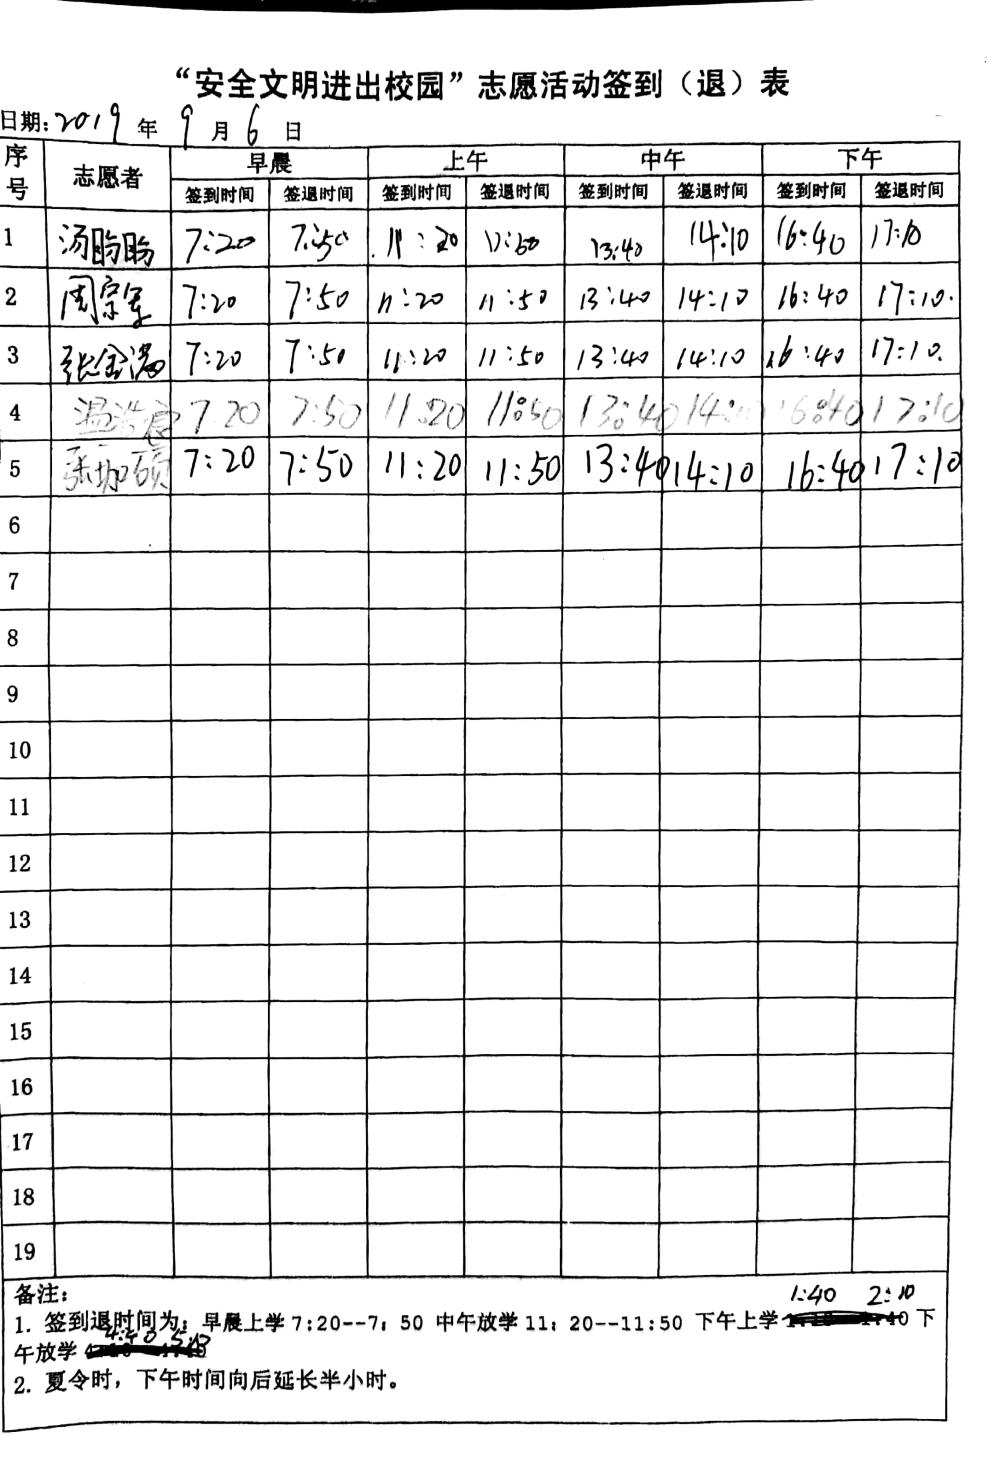 “安全文明进出校园”志愿活动签到（退）表
日期:2019年9月6日
序号 志愿者 早晨 上午 中午 下午
签到时间 签退时间 签到时间 签退时间 签到时间 签退时间 签到时间 签退时间
1 汤盼盼 7:20 7:50 11:20 11:50 13:40 14:10 16:40 17:10
2 周宗军 7:20 7:50 11:20 11:50 13:40 14:10 16:40 17:10.
3 张金满 7:20 7:50 11:20 11:50 13:40 14:10 16:40 17:10.
4 温浩 7 20 7:50 11:20 11:50 13:40 14:10 16:40 17:10
5 张珈硕 7:20 7:50 11:20 11:50 13:40 14:10 16:40 17:10
6
7
8
9
10
11
12
13
14
15
16
17
18
19
备注:
1:40 2:10
1. 签到退时间为: 早晨上学7:20--7: 50 中午放学11: 20--11:50 下午上学 下
4:40 5:10
午放学
2. 夏令时，下午时间向后延长半小时。